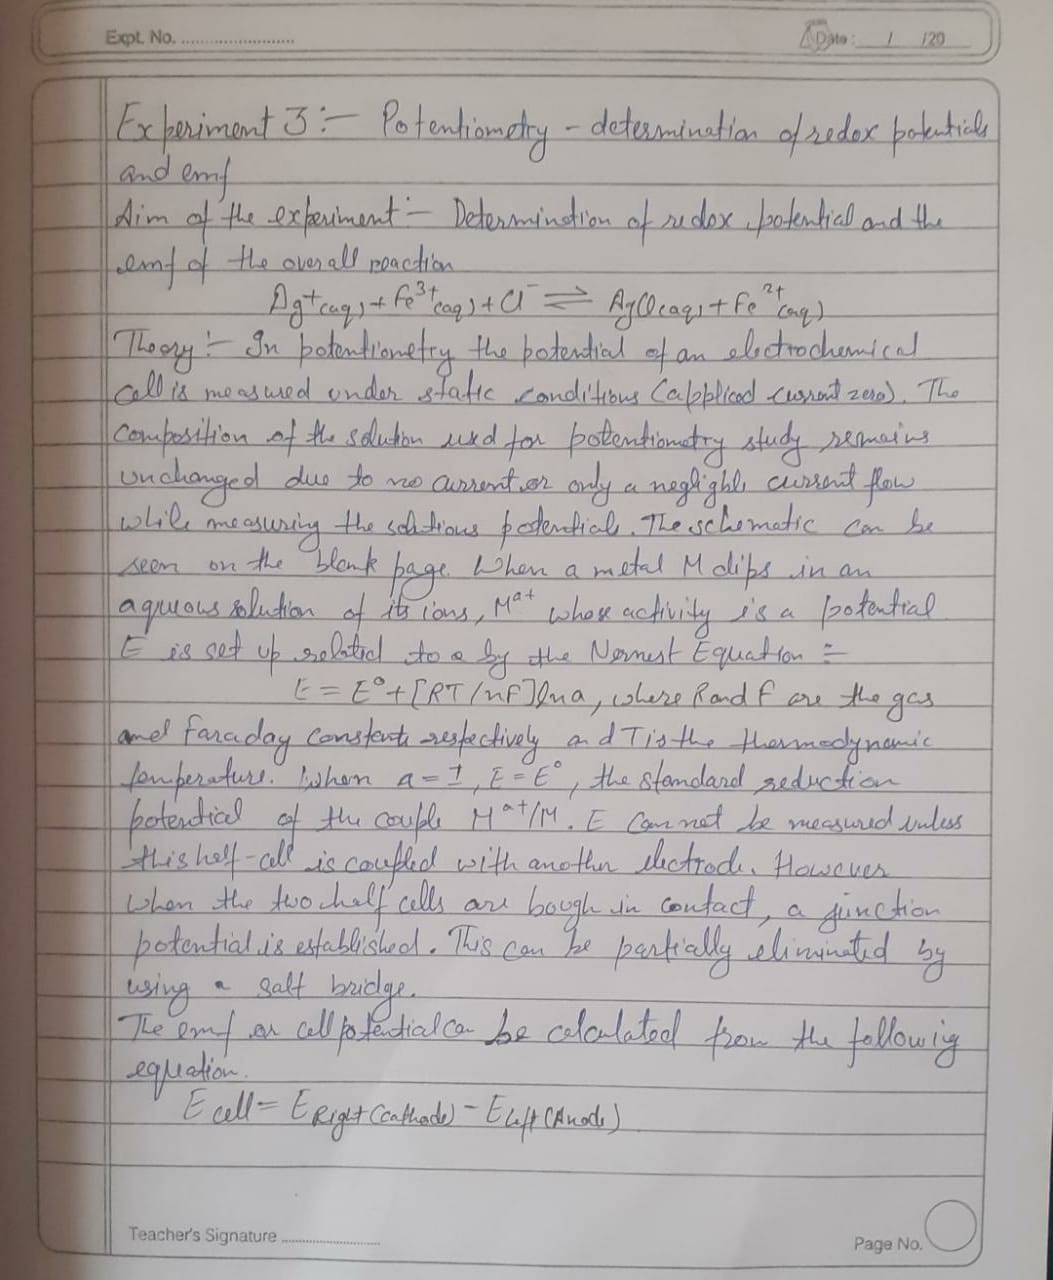 Expt. No. ........................
Date: / /20
Experiment 3:- Potentiometry - determination of redox potentials
and emf
Aim of the experiment:- Determination of redox potential and the
emf of the overall reaction
Ag⁺(aq) + Fe³⁺(aq) + Cl⁻ ⇌ AgCl(aq) + Fe²⁺(aq)
Theory:- In potentiometry the potential of an electrochemical
cell is measured under static conditions (applied current zero). The
composition of the solution used for potentiometry study remains
unchanged due to no current or only a negligible current flow
while measuring the solutions potential. The schematic can be
seen on the blank page. When a metal M dips in an
aqueous solution of its ions, Mᵃ⁺ whose activity is a potential
E is set up related to a by the Nernest Equation :-
E = E° + [RT/nF]lna, where R and F are the gas
and Faraday constants respectively and T is the thermodynamic
temperature. When a = 1, E = E°, the standard reduction
potential of the couple Mᵃ⁺/M. E cannot be measured unless
this half-cell is coupled with another electrode. However
when the two half cells are bough in contact, a junction
potential is established. This can be partially eliminated by
using a salt bridge.
The emf or cell potential can be calculated from the following
equation.
E cell = E Right(cathode) - E Left(Anode)
Teacher's Signature ........................
Page No.